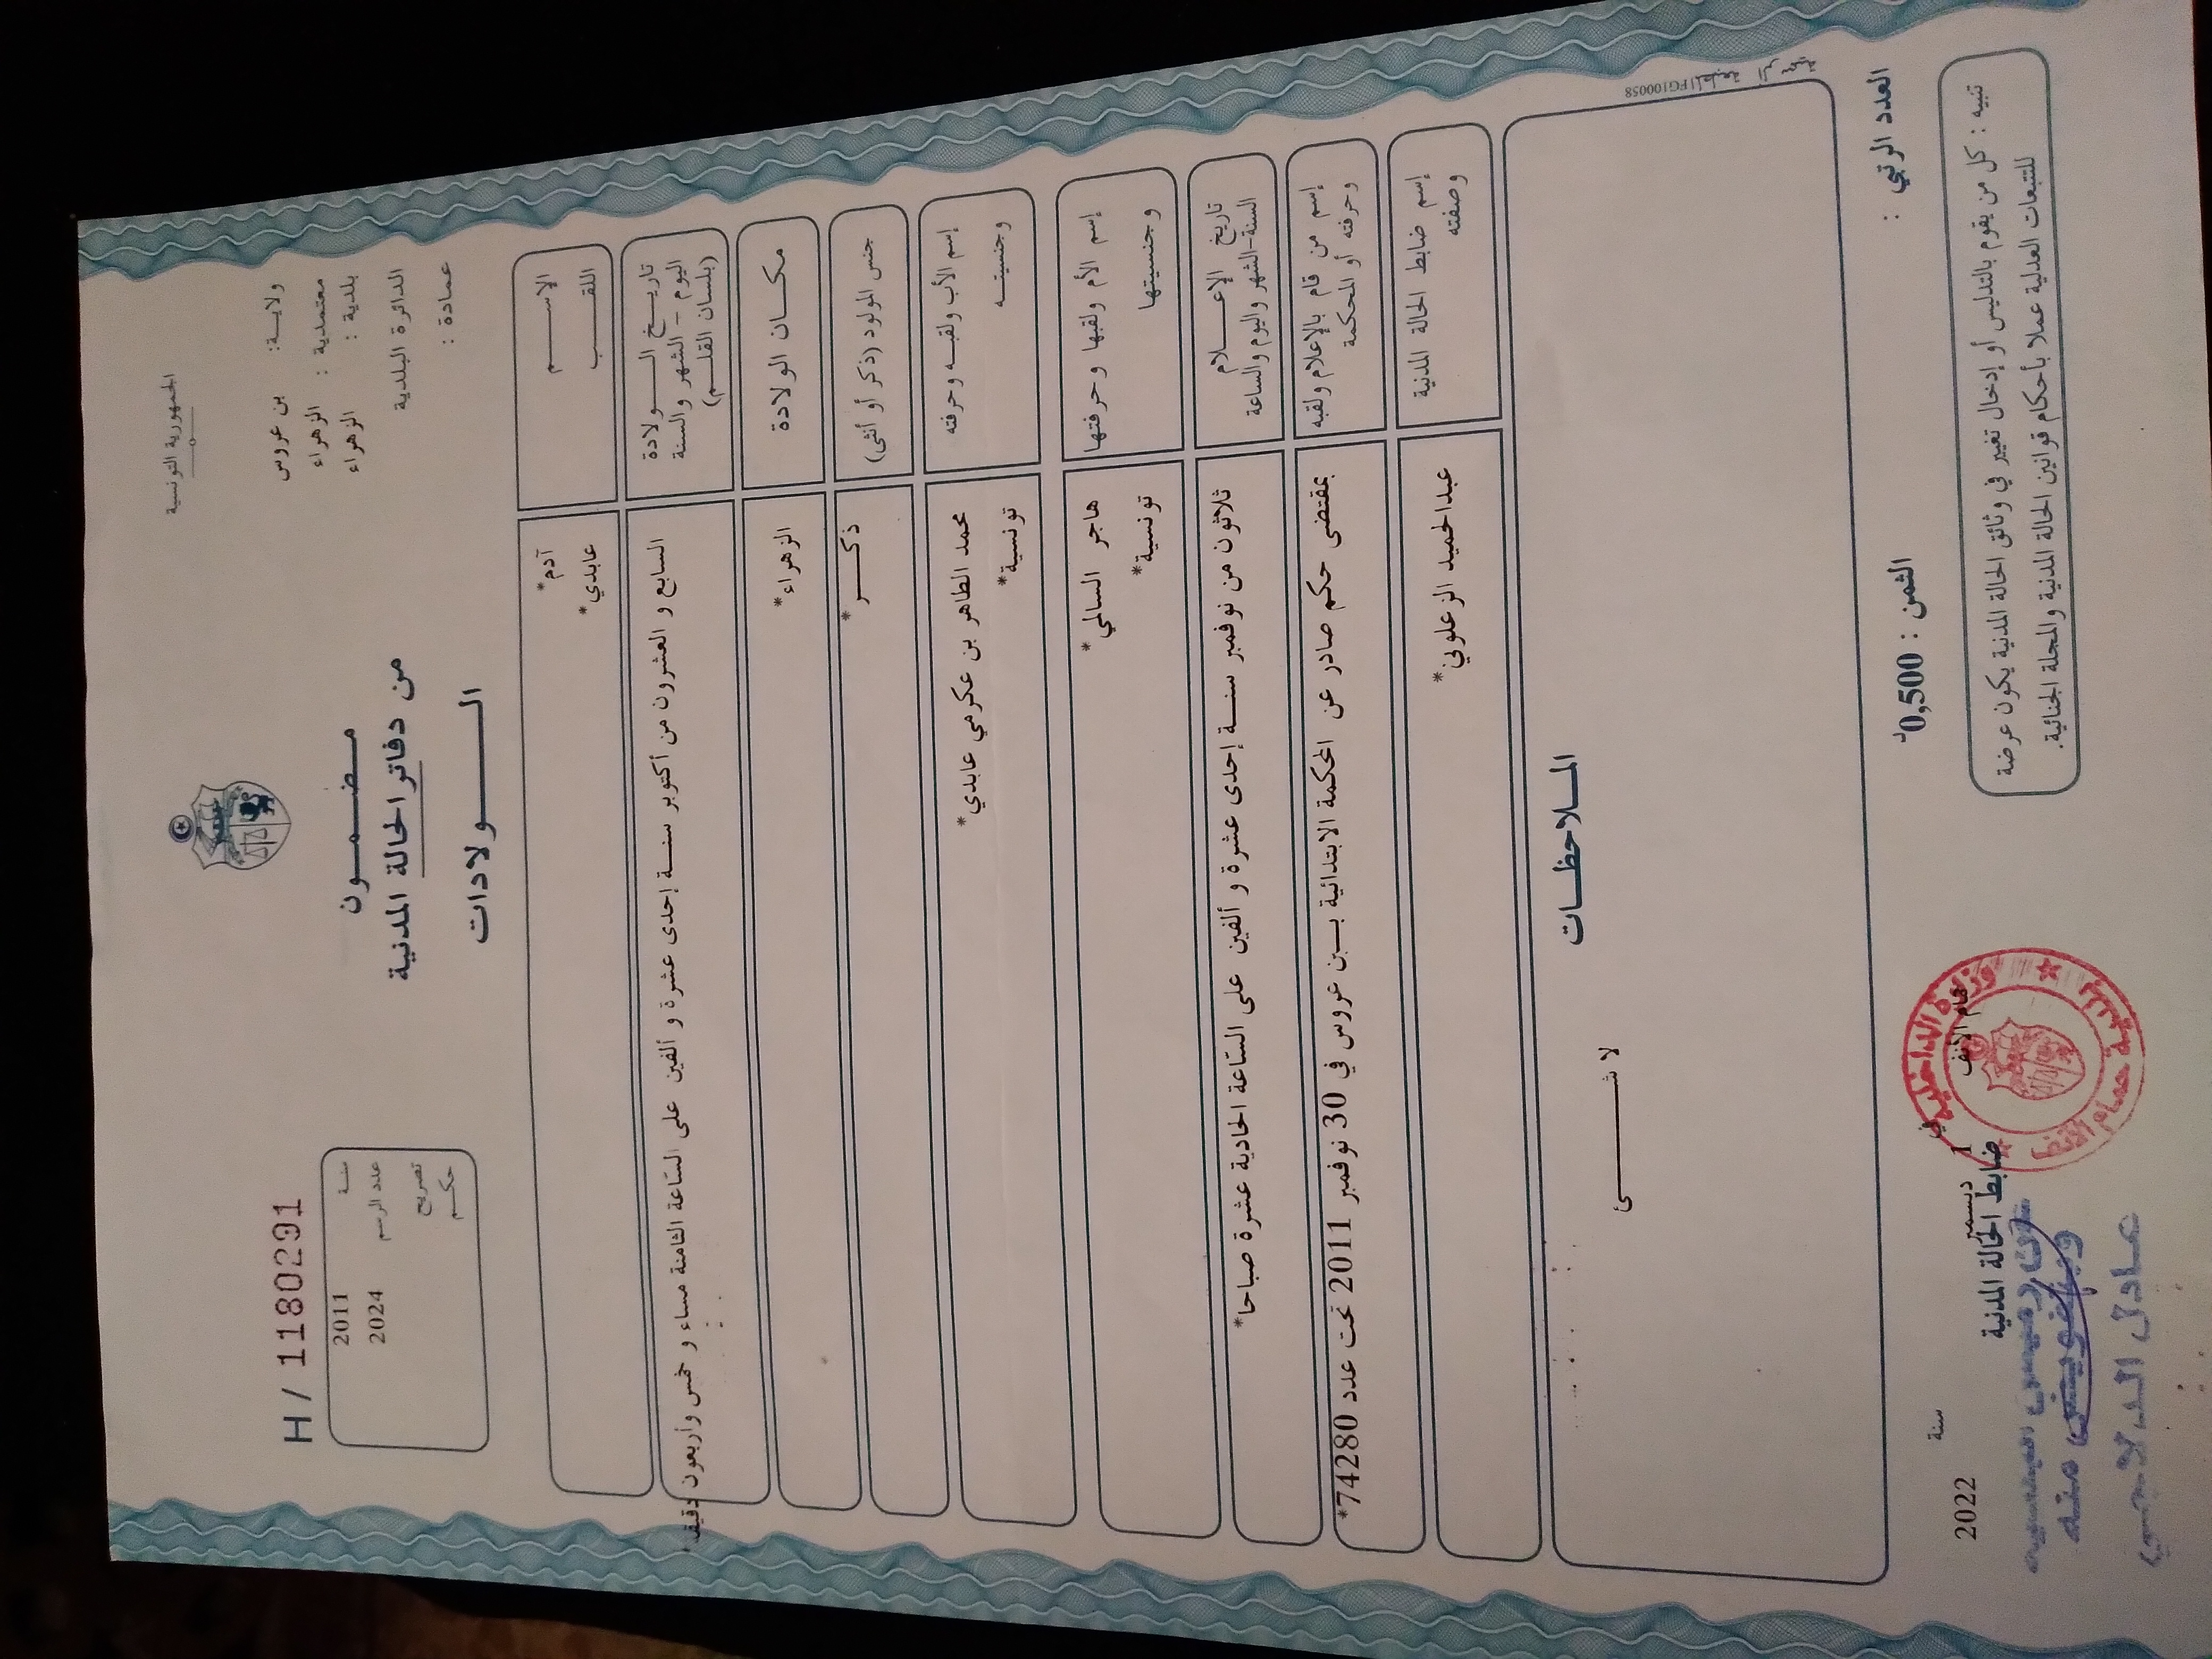 الجمهورية التونسية
ولاية: بن عروس
معتمدية : الزهراء
بلدية : الزهراء
الدائرة البلدية
عمادة :
مضمون
من دفاتر الحالة المدنية
الولادات
H / 1180291
سنة 2011
عدد الرسم 2024
تصريح
حكم
الإسم
اللقب
*آدم
*عابدي
تاريخ الولادة
اليوم - الشهر والسنة
(بلسان القلم)
السابع و العشرون من أكتوبر سنة إحدى عشرة و ألفين على الساعة الثامنة مساء و خمس وأربعون دقيقة
مكان الولادة
*الزهراء
جنس المولود (ذكر أو أنثى)
*ذكر
إسم الأب ولقبه وحرفته
وجنسيته
محمد الطاهر بن عكرمي عابدي*
تونسية*
إسم الأم ولقبها وحرفتها
وجنسيتها
هاجر السالمي*
تونسية*
تاريخ الإعلام
السنة-الشهر واليوم والساعة
ثلاثون من نوفمبر سنة إحدى عشرة و ألفين على الساعة الحادية عشرة صباحا*
إسم من قام بالإعلام ولقبه
وحرفته أو المحكمة
بمقتضى حكم صادر عن المحكمة الابتدائية ببن عروس في 30 نوفمبر 2011 تحت عدد 74280*
إسم ضابط الحالة المدنية
وصفته
عبدالحميد الزعلوني*
الملاحظات
لا شئ
FG100058
العدد الرتبي :
الثمن : 0,500د
حمام الأنف في 1 ديسمبر سنة 2022
ضابط الحالة المدنية
تنبيه : كل من يقوم بالتدليس أو إدخال تغيير في وثائق الحالة المدنية يكون عرضة
للتتبعات العدلية عملا بأحكام قوانين الحالة المدنية والمجلة الجنائية.
وزارة الداخلية
بلدية حمام الأنف
وبتفويض منه
عادل الدلاجي